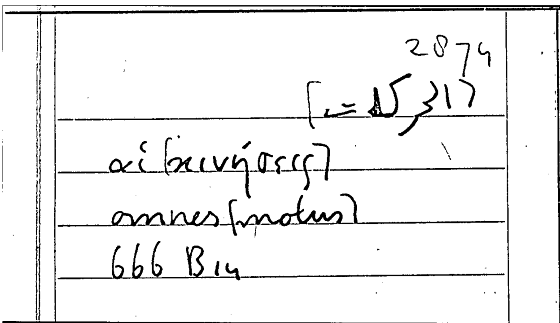 2874
αἱ [κινήσεις]
omnes [motus]
666 B 14